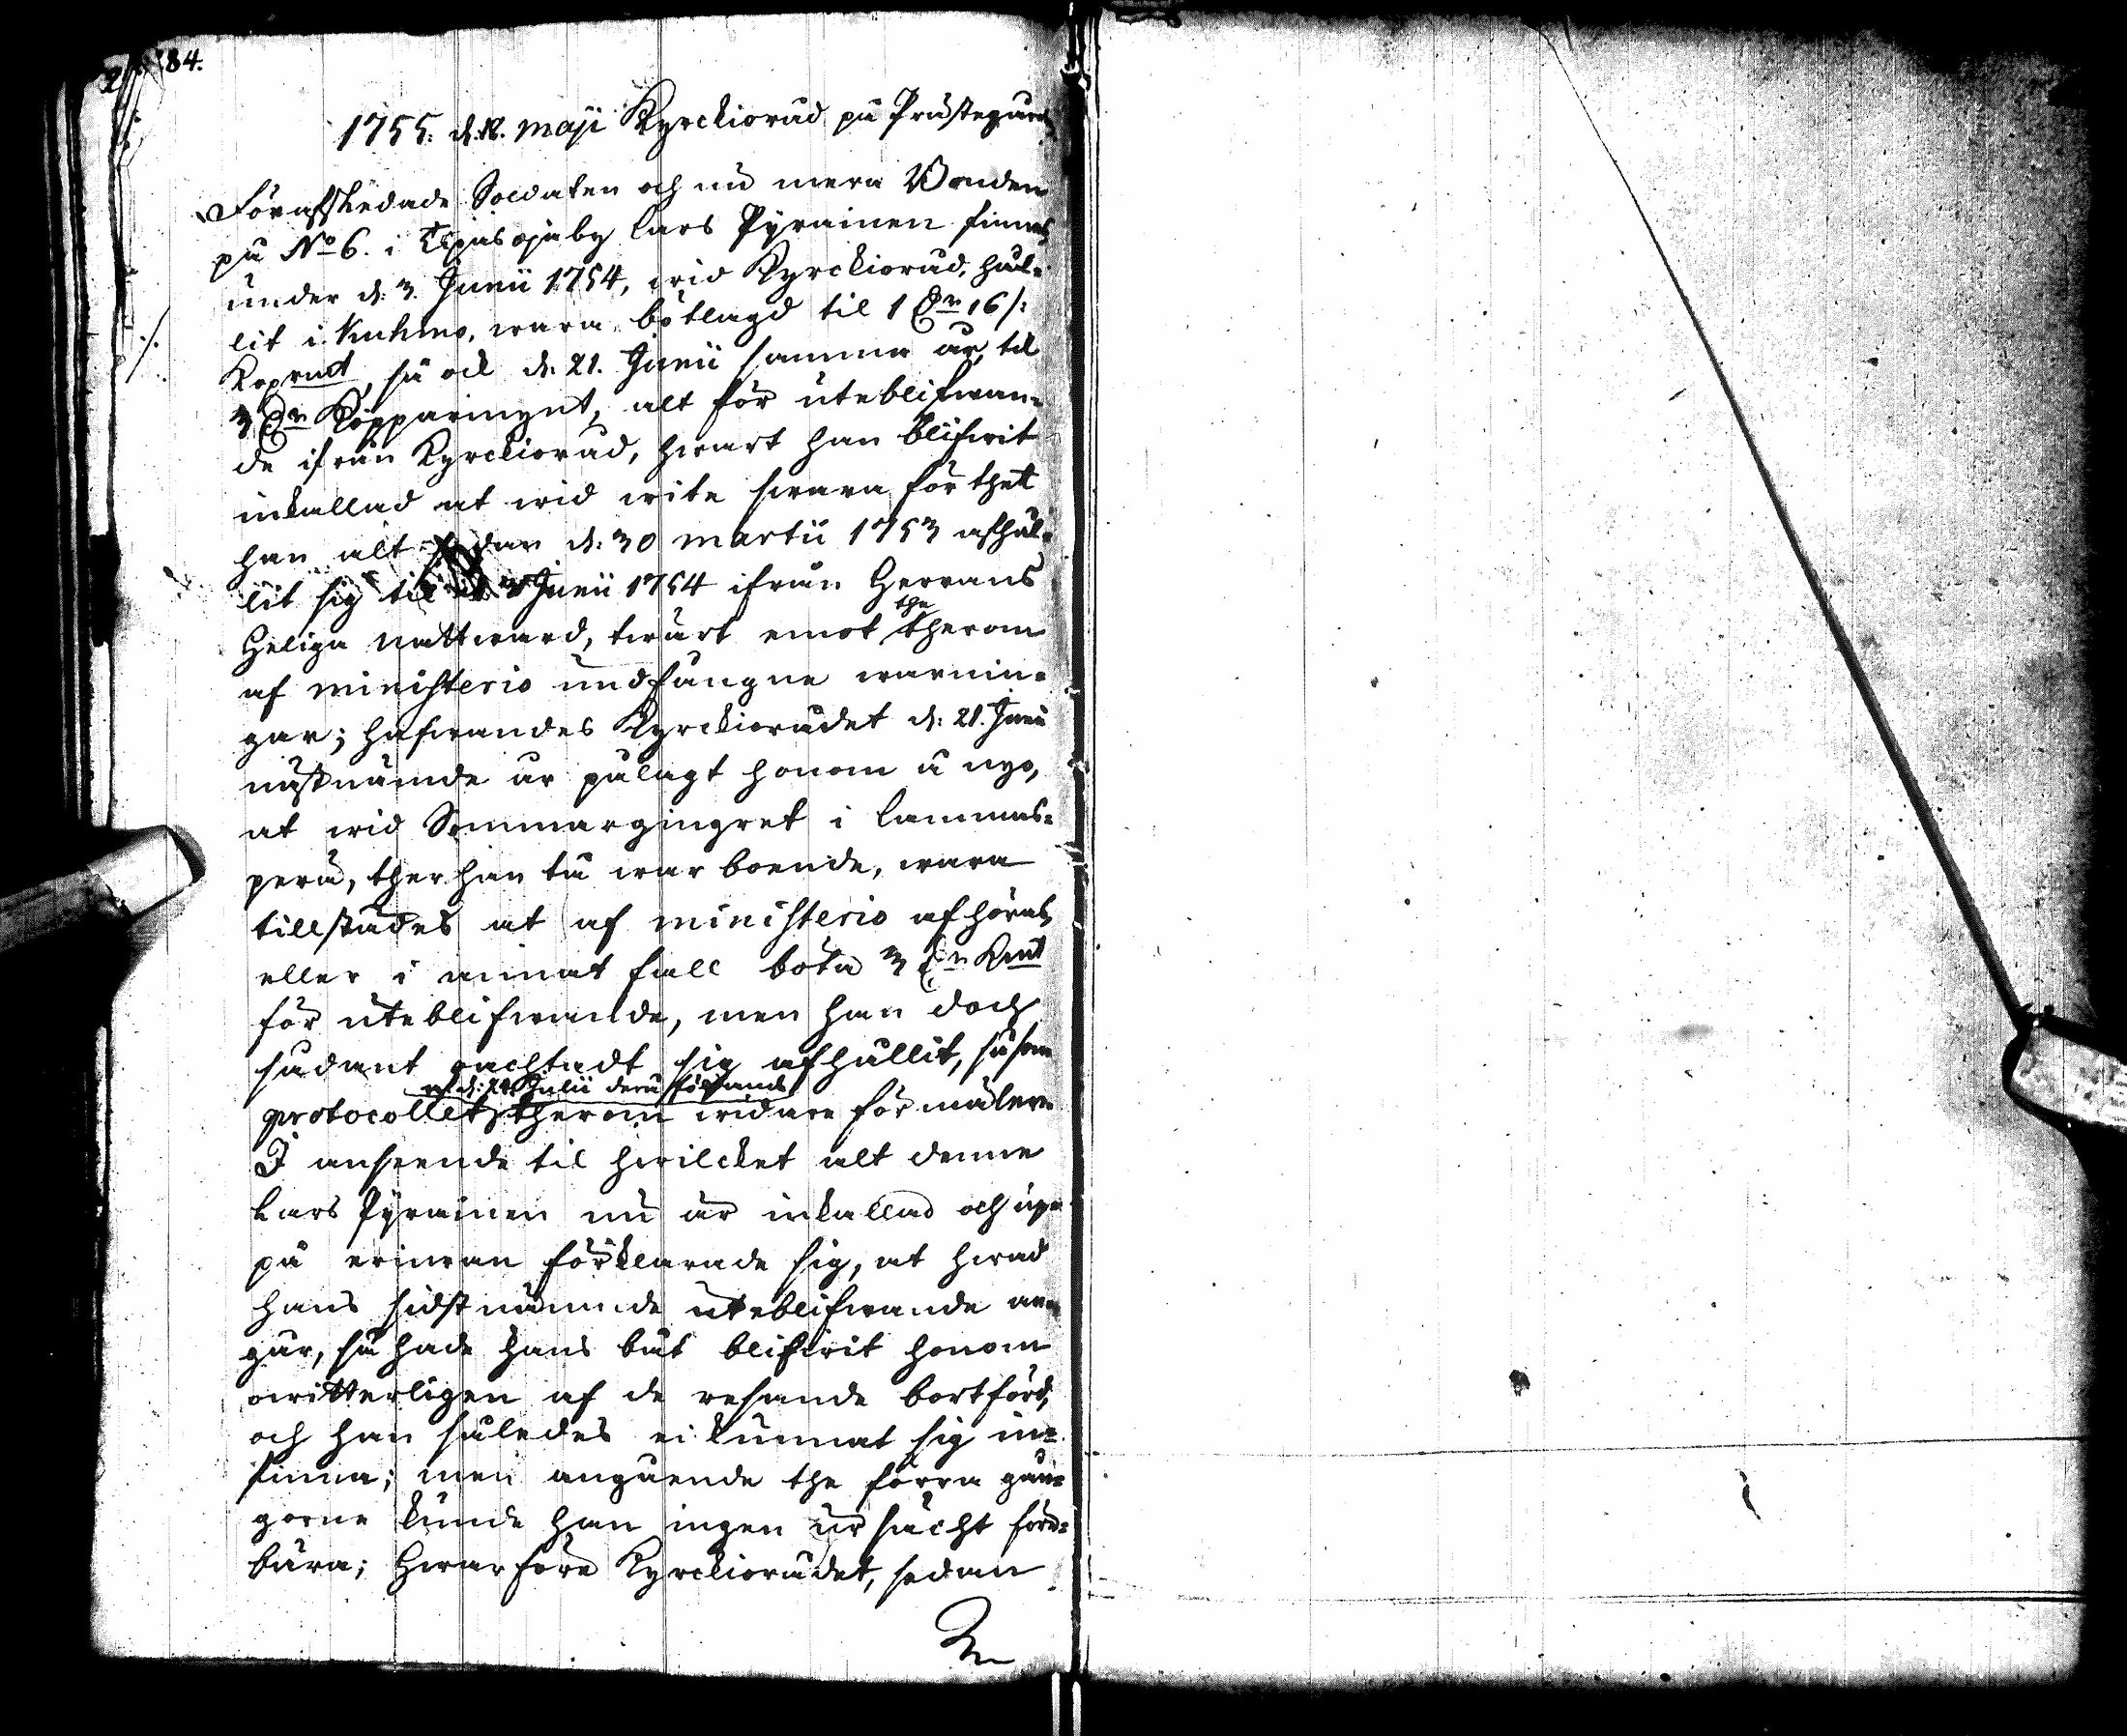 84.
1755. d. 18. maji Kyrckioråd på Prästegården
Förafskedade Soldaten och nu mera Bonden
på No 6. i Tipasoja by Lars Pyrainen finnes
under d. 3. Junii 1754, wid Kyrckioråd, hål-
lit i Kuhmo, wara bötlagd til 1 Dr 16 /:
Kopmt, så ock d. 21. Junii samma år, til
3 Dr Kopparmynt, alt för uteblifwan-
de ifrån Kyrckioråd, hwart han blifwit
inkallad at wid wite swara för thet
han alt sedan d: 30 martii 1753 afhål-
lit sig til d. 3 Junii 1754 ifrån Herrans
Heliga Nattward, twärt emot the therom
af ministerio undfångne warnin-
gar; hafwandes Kyrckiorådet d: 21. Junii
nästnämde år pålagt honom å nyo,
at wid Sommarginget i Lammas-
perä, ther han tå war boende, wara
tillstädes at af ministerio afhöras,
eller i annat fall böta 3 Dr Kmt
för uteblifwande, men han doch
sådant oachtadt sig afhållit, såsom
af d: 24 Julii derå förhand
protocollet therom widare förmäler.
I anseende til hwilcket alt denne
Lars Pyrainen nu är inkallad och up-
på erinran förklarade sig, at hwad
hans sidstnämnde uteblifwande an-
går, så hade hans båt blifwit honom
owitterligen af de resande bortförd,
och han således ei kunnat sig in-
finna; men angående the förra gån-
gorne kunde han ingen ursäckt före-
bära; Hwarföre Kyrckiorådet, sedan